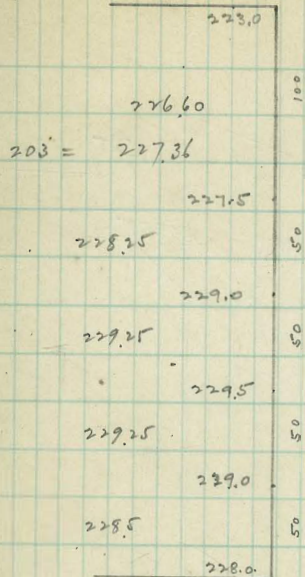 223.0
100
226.60
203 = 227.36
227.5
228.25
50
229.0
229.25
50
229.5
229.25
50
229.0
228.5
50
228.0